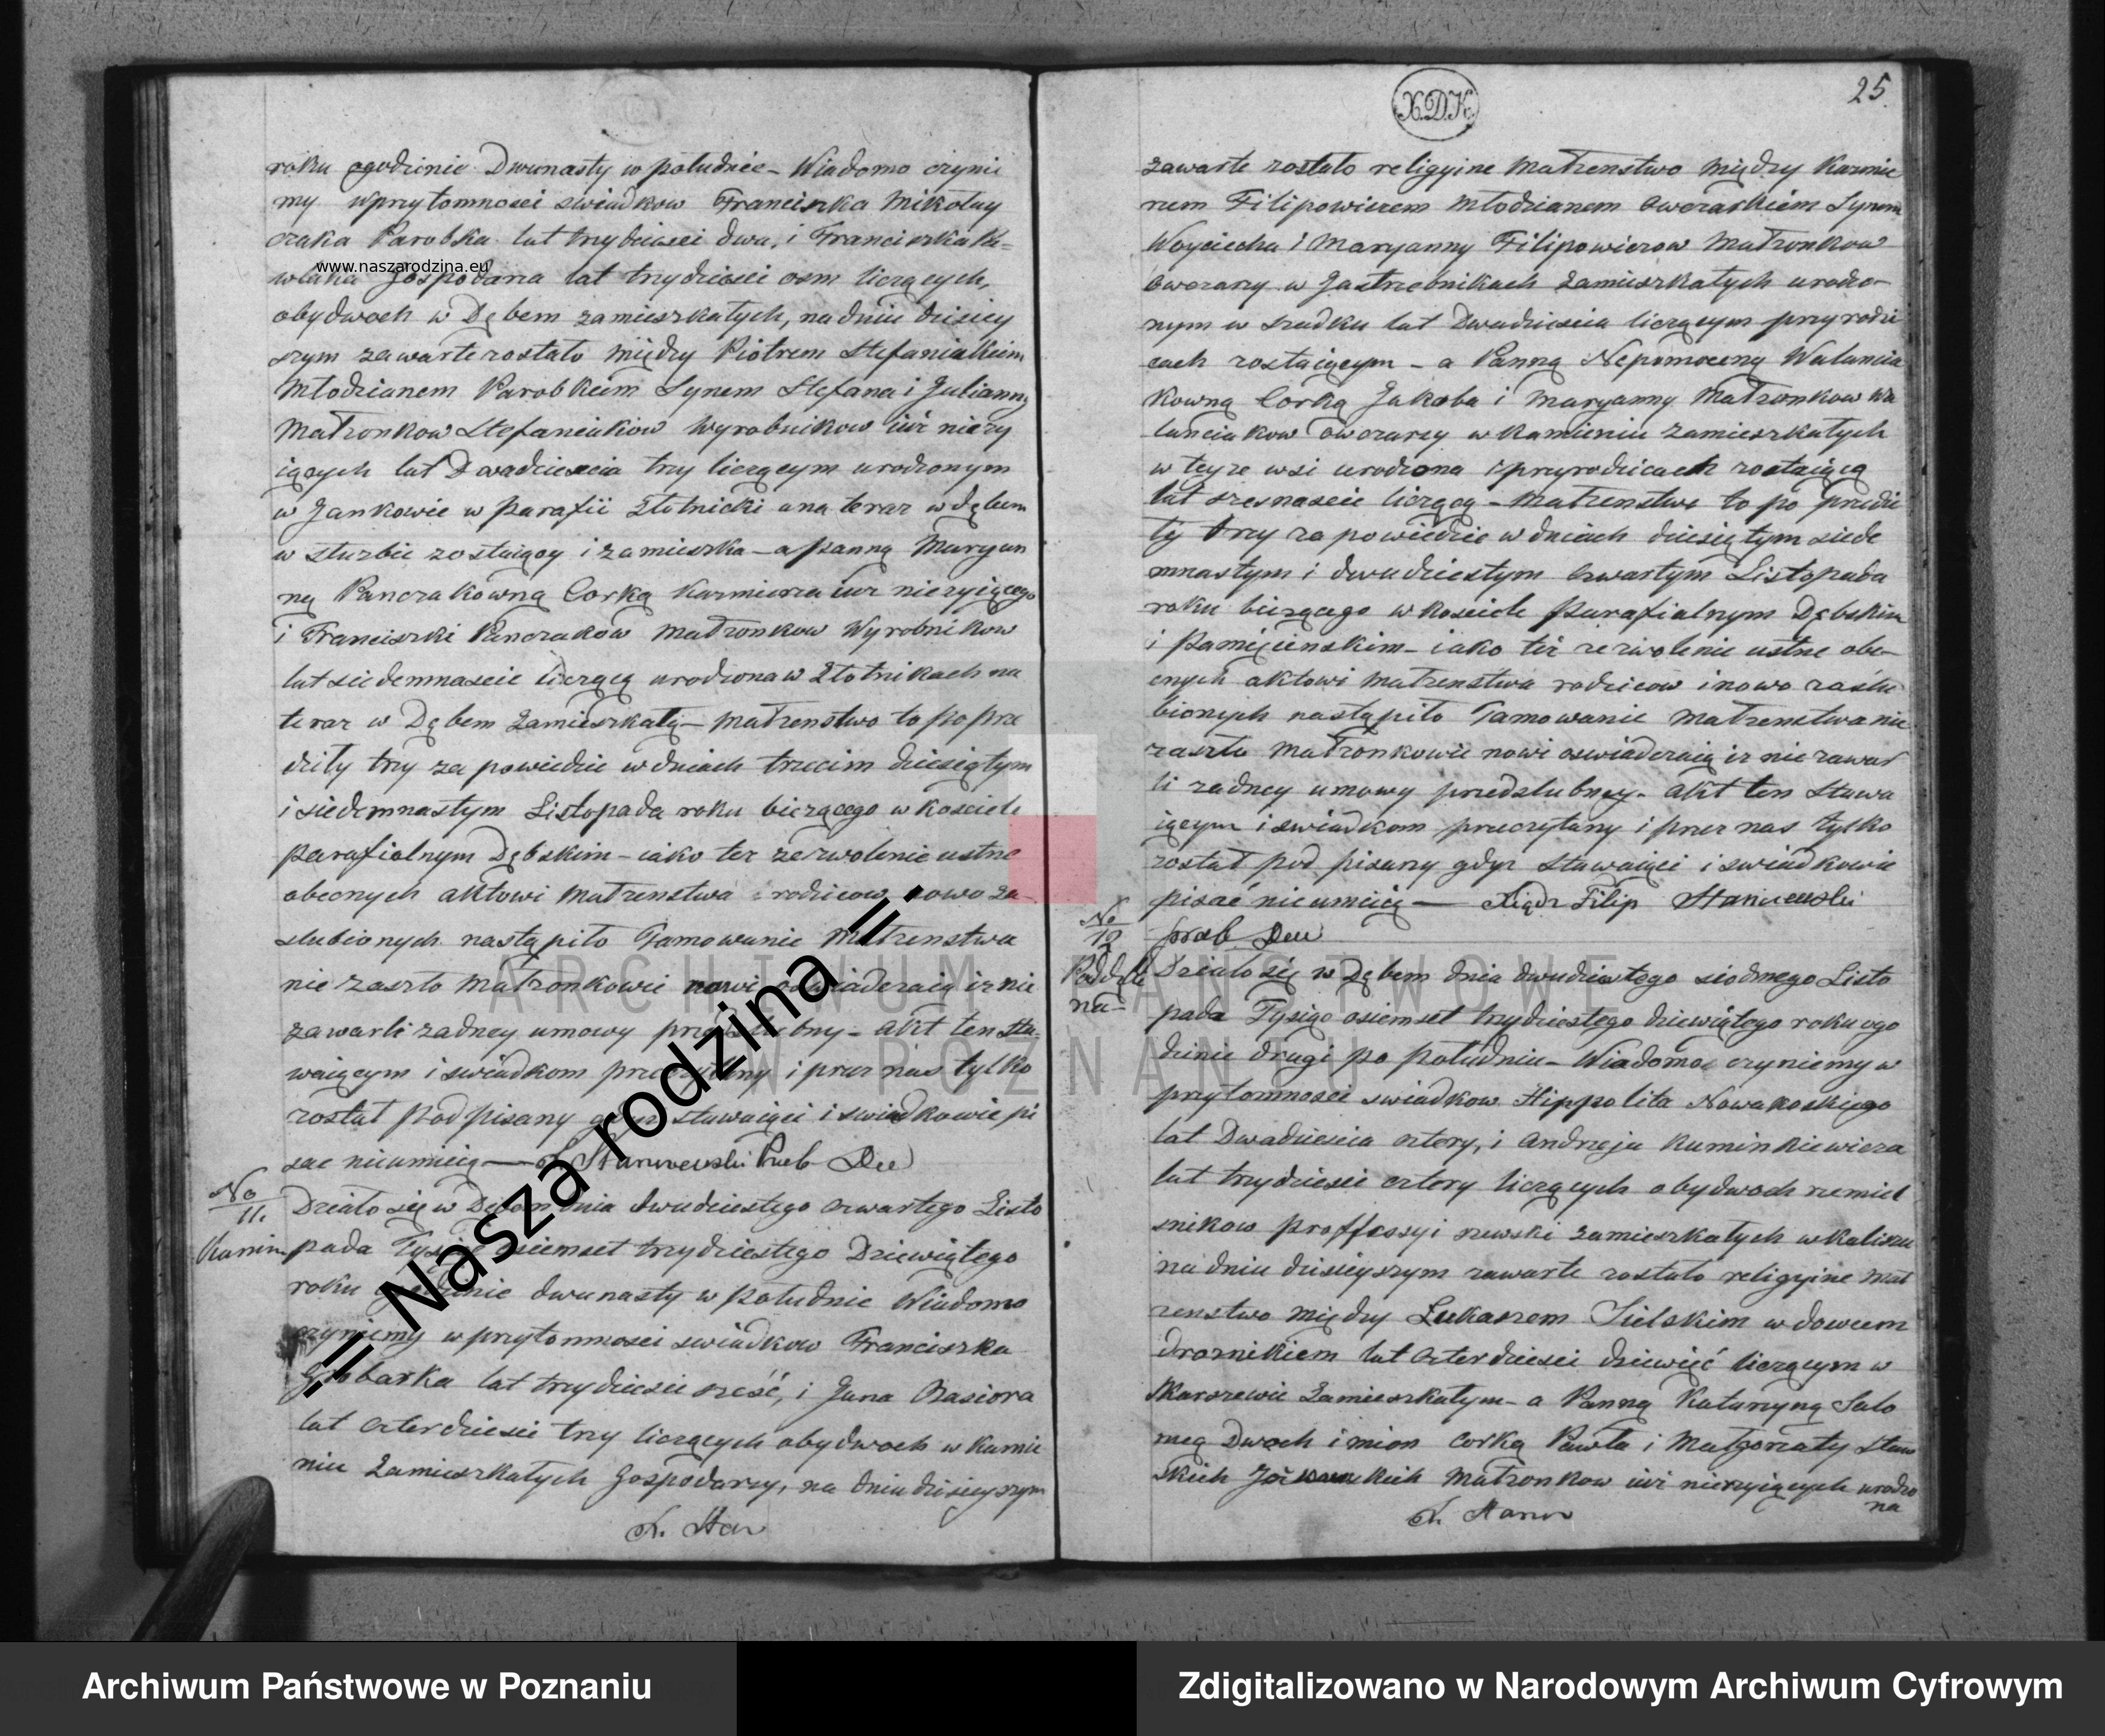 roku ogodzinie Dwunasty w południe – Wiadomo czyni
my wprzytomności swiadkow Franciszka Mikołay
czaka Parobka lat trzydzieści dwa, i Franciszka Pa=
wlaka Gospodarza lat trzydzieści osm liczących,
www.naszarodzina.eu
obydwoch w Dębem zamieszkałych, na dniu dzisiey
szym zawarte zostało między Piotrem Stefaniakiem
Młodzianem Parobkiem Synem Stefana i Julianny
Małzonkow Stefaniakow Wyrobnikow iuż nieży
iących lat Dwadziescia trzy liczącym urodzonym
w Jankowie w Parafii Złotnicki a na teraz w dębem
w słuzbie zostaiący i zamieszka – a panną Maryan
ną Panczakowną Corką Kazmierza iuz nieżyiącego
i Franciszki Panczakow Małzonkow Wyrobnikow
lat siedemnaście liczącą urodzona w Złotnikach na
teraz w Dębem zamieszkałą – Małzenstwo to po prze
dziły trzy za powiedzie w dniach trzecim dziesiątym
i siedemnastym Listopada roku bieżącego w kosciele
parafialnym Dębskim – iako tez zezwolenie ustne
obecnych aktowi Małzenstwa rodzicow nowo za
slubionych nastąpiło Tamowanie Małzenstwa
nie zaszło Małzonkowie nowi oswiadczaią iz nie
zawarli zadney umowy przedslubny – Akt ten sta=
waiącym i swiadkom przeczytany i przez nas tylko
został podpisany gdyz stawaiąci i swiadkowie pi
sac nieumieią — X. F. Staniszewski Prob Dee
No
11.
Kamin
Działo się w Dębem dnia dwudziestego czwartego Listo
pada Tysiąc osiemset trzydziestego Dziewiątego
roku ogodzinie dwunasty w południe Wiadomo
czyniemy w przytomności swiadkow Franciszka
Grobarka lat trzydzieści sześć, i Jana Basiora
lat czterdzieści trzy liczących obydwoch w Kamie
niu Zamieszkałych Gospodarzy, na dniu dzisieyszym
X. Stan
X.D.K.
25
zawarte zostało religyine Małzenstwo między Kazmie
rzem Filipowiczem Młodzianem Owczarskiem Synem
Woyciecha i Maryanny Filipowiczow Małzonkow
Owczarzy w Jastrzebnikach zamieszkałych urodzo-
nym w Szadku lat Dwadziescia liczącym przy rodzi
cach zostaiącym – a Panną Nepomoceną Walencia
kowną Corką Jakoba i Maryanny Małzonkow Wa
lenciakow owczarzy w Kamieniu zamieszkałych
w teyze wsi urodzona i przyrodzicach zostaiącą
lat szesnascie liczącą – Małzenstwo to po przedzi
ły trzy zapowiedzie w dniach dziesiątym siede
mnastym i dwudziestym czwartym Listopada
roku bieżącego w kosciele parafialnym Dębskim
i Pamięcinskim – iako też zezwolenie ustne obe-
cnych aktowi Małzenstwa rodzicow i nowo zaslu
bionych nastąpiło Tamowanie Małzenstwa nie
zaszło Małzonkowie nowi oswiadczaią iz nie zawar
li zadney umowy przedslubney. Akt ten stawa
iącym i swiadkom przeczytany i przez nas tylko
został pod pisany gdyz stawaiąci i swiadkowie
pisać nieumieią — Xiądz Filip Staniszewski
prob Dee
No
12
na-
Działo się w Dębem dnia dwudziestego siodmego Listo
pada Tysiąc osiemset trzydziestego dziewiątego roku ogo
dzinie drugi po południu – Wiadomo czyniemy w
przytomności swiadkow Hippolita Nowakoskiego
lat Dwadziescia cztery, i Andrzeja Kaminkiewicza
lat trzydzieści cztery liczących obydwoch rzemieł
snikow proffessyi szewski zamieszkałych w Kaliszu
na dniu dzisieyszym zawarte zostało religyine mał
zenstwo między Łukaszem Sielskim wdowcem
droznikiem lat czterdzieści dziewięć liczącym w
Skarszewie Zamieszkałym – a Panną Katarzyną Salo
meą Dwoch imion corką Pawła i Małgorzaty
Małzonkow iuż nieżyiących urodzo
na
X. Stanisz
ARCHIWUM PAŃSTWOWE
W POZNANIU
!!! Nasza rodzina !!!
Archiwum Państwowe w Poznaniu
Zdigitalizowano w Narodowym Archiwum Cyfrowym